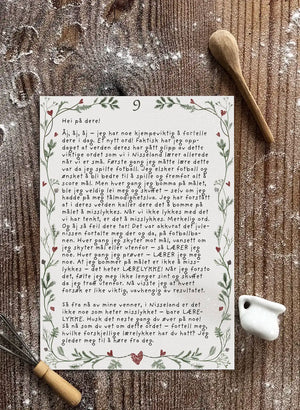 9
Hei på dere!
Åj, åj, åj – jeg har noe kjempeviktig å fortelle
dere i dag. Et nytt ord! Faktisk har jeg opp-
daget at verden deres har gått glipp av dette
viktige ordet som vi i Nisseland lærer allerede
når vi er små. Første gang jeg måtte lære dette
var da jeg spilte fotball. Jeg elsker fotball og
ønsket å bli bedre til å spille og fremfor alt å
score mål. Men hver gang jeg bomma på målet,
blir jeg veldig lei meg og skuffet – selv om jeg
hadde på meg tålmodighetslua. Jeg har forstått
at i deres verden kaller dere det å bomme på
målet å mislykkes. Når vi ikke lykkes med det
vi har tenkt, er det å misslykkes. Merkelig ord.
Og åj så feil dere tar! Det var akkurat det jule-
nissen fortalte meg der og da, på fotballba-
nen. Hver gang jeg skyter mot mål, uansett om
jeg skyter mål eller utenfor – så LÆRER jeg
noe. Hver gang jeg prøver – LÆRER jeg meg
noe. At jeg bommer på målet er ikke å miss-
lykkes – det heter LÆRELYKKE! Når jeg forsto
det, følte jeg meg ikke lenger sint og skuffet
da jeg traff utenfor. Nå visste jeg at hvert
forsøk er like viktig, uavhengig av resultatet.
Så fra nå av mine venner, i Nisseland er det
ikke noe som heter misslykket – bare LÆRE-
LYKKE. Husk det neste gang du øver på noe!
Så nå som du vet om dette ordet – fortell meg,
hvilke forskjellige lærelykker har du hatt? Jeg
gleder meg til å høre fra deg.